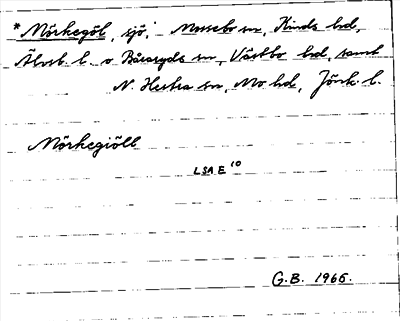 *Mörkegöl, sjö; Mossebo sn, Kinds hd,
Älvsb. l. o Båraryds sn, Västbo hd, samt
N. Hestra sn, Mo hd, Jönk. l.
Mörkegiöll
LSA E 10
G.B. 1966.